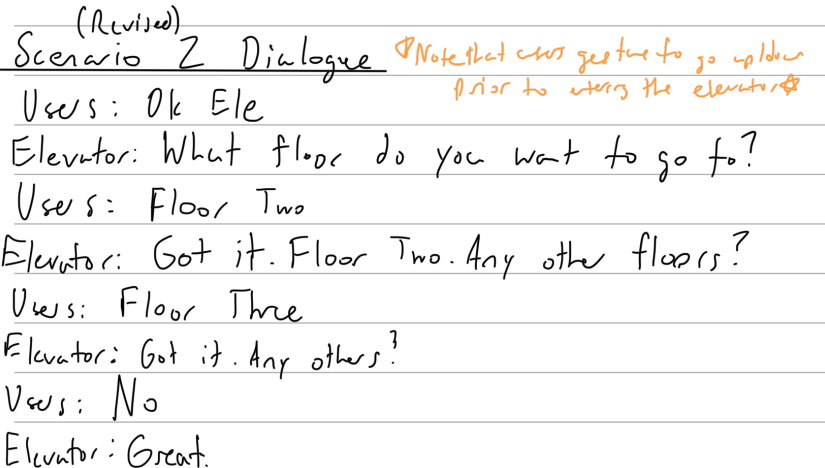 (Revised)
Scenario 2 Dialogue
*Note that users gesture to go up/down
prior to entering the elevator*
Users: Ok Ele
Elevator: What floor do you want to go to?
Users: Floor Two
Elevator: Got it. Floor Two. Any other floors?
Users: Floor Three
Elevator: Got it. Any others?
Users: No
Elevator: Great.